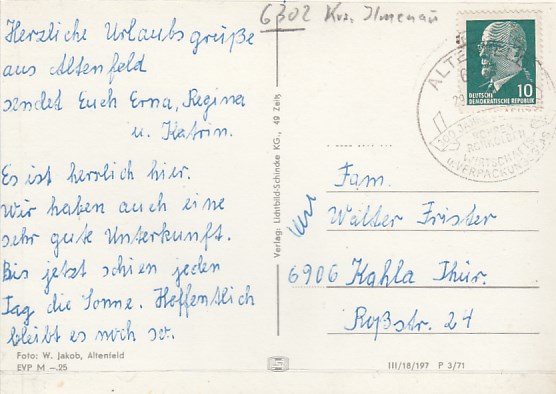 6302 Krs. Ilmenau
Herzliche Urlaubsgrüße
aus Altenfeld
sendet Euch Erna, Regina
u. Katrin.
Es ist herrlich hier.
Wir haben auch eine
sehr gute Unterkunft.
Bis jetzt schien jeden
Tag die Sonne. Hoffentlich
bleibt es noch so.
Foto: W. Jakob, Altenfeld
EVP M –.25
Verlag: Lichtbild-Schincke KG., 49 Zeitz
10
DEUTSCHE
DEMOKRATISCHE REPUBLIK
Fam.
Walter Frister
6906 Kahla Thür.
Roßstr. 24
III/18/197 P 3/71